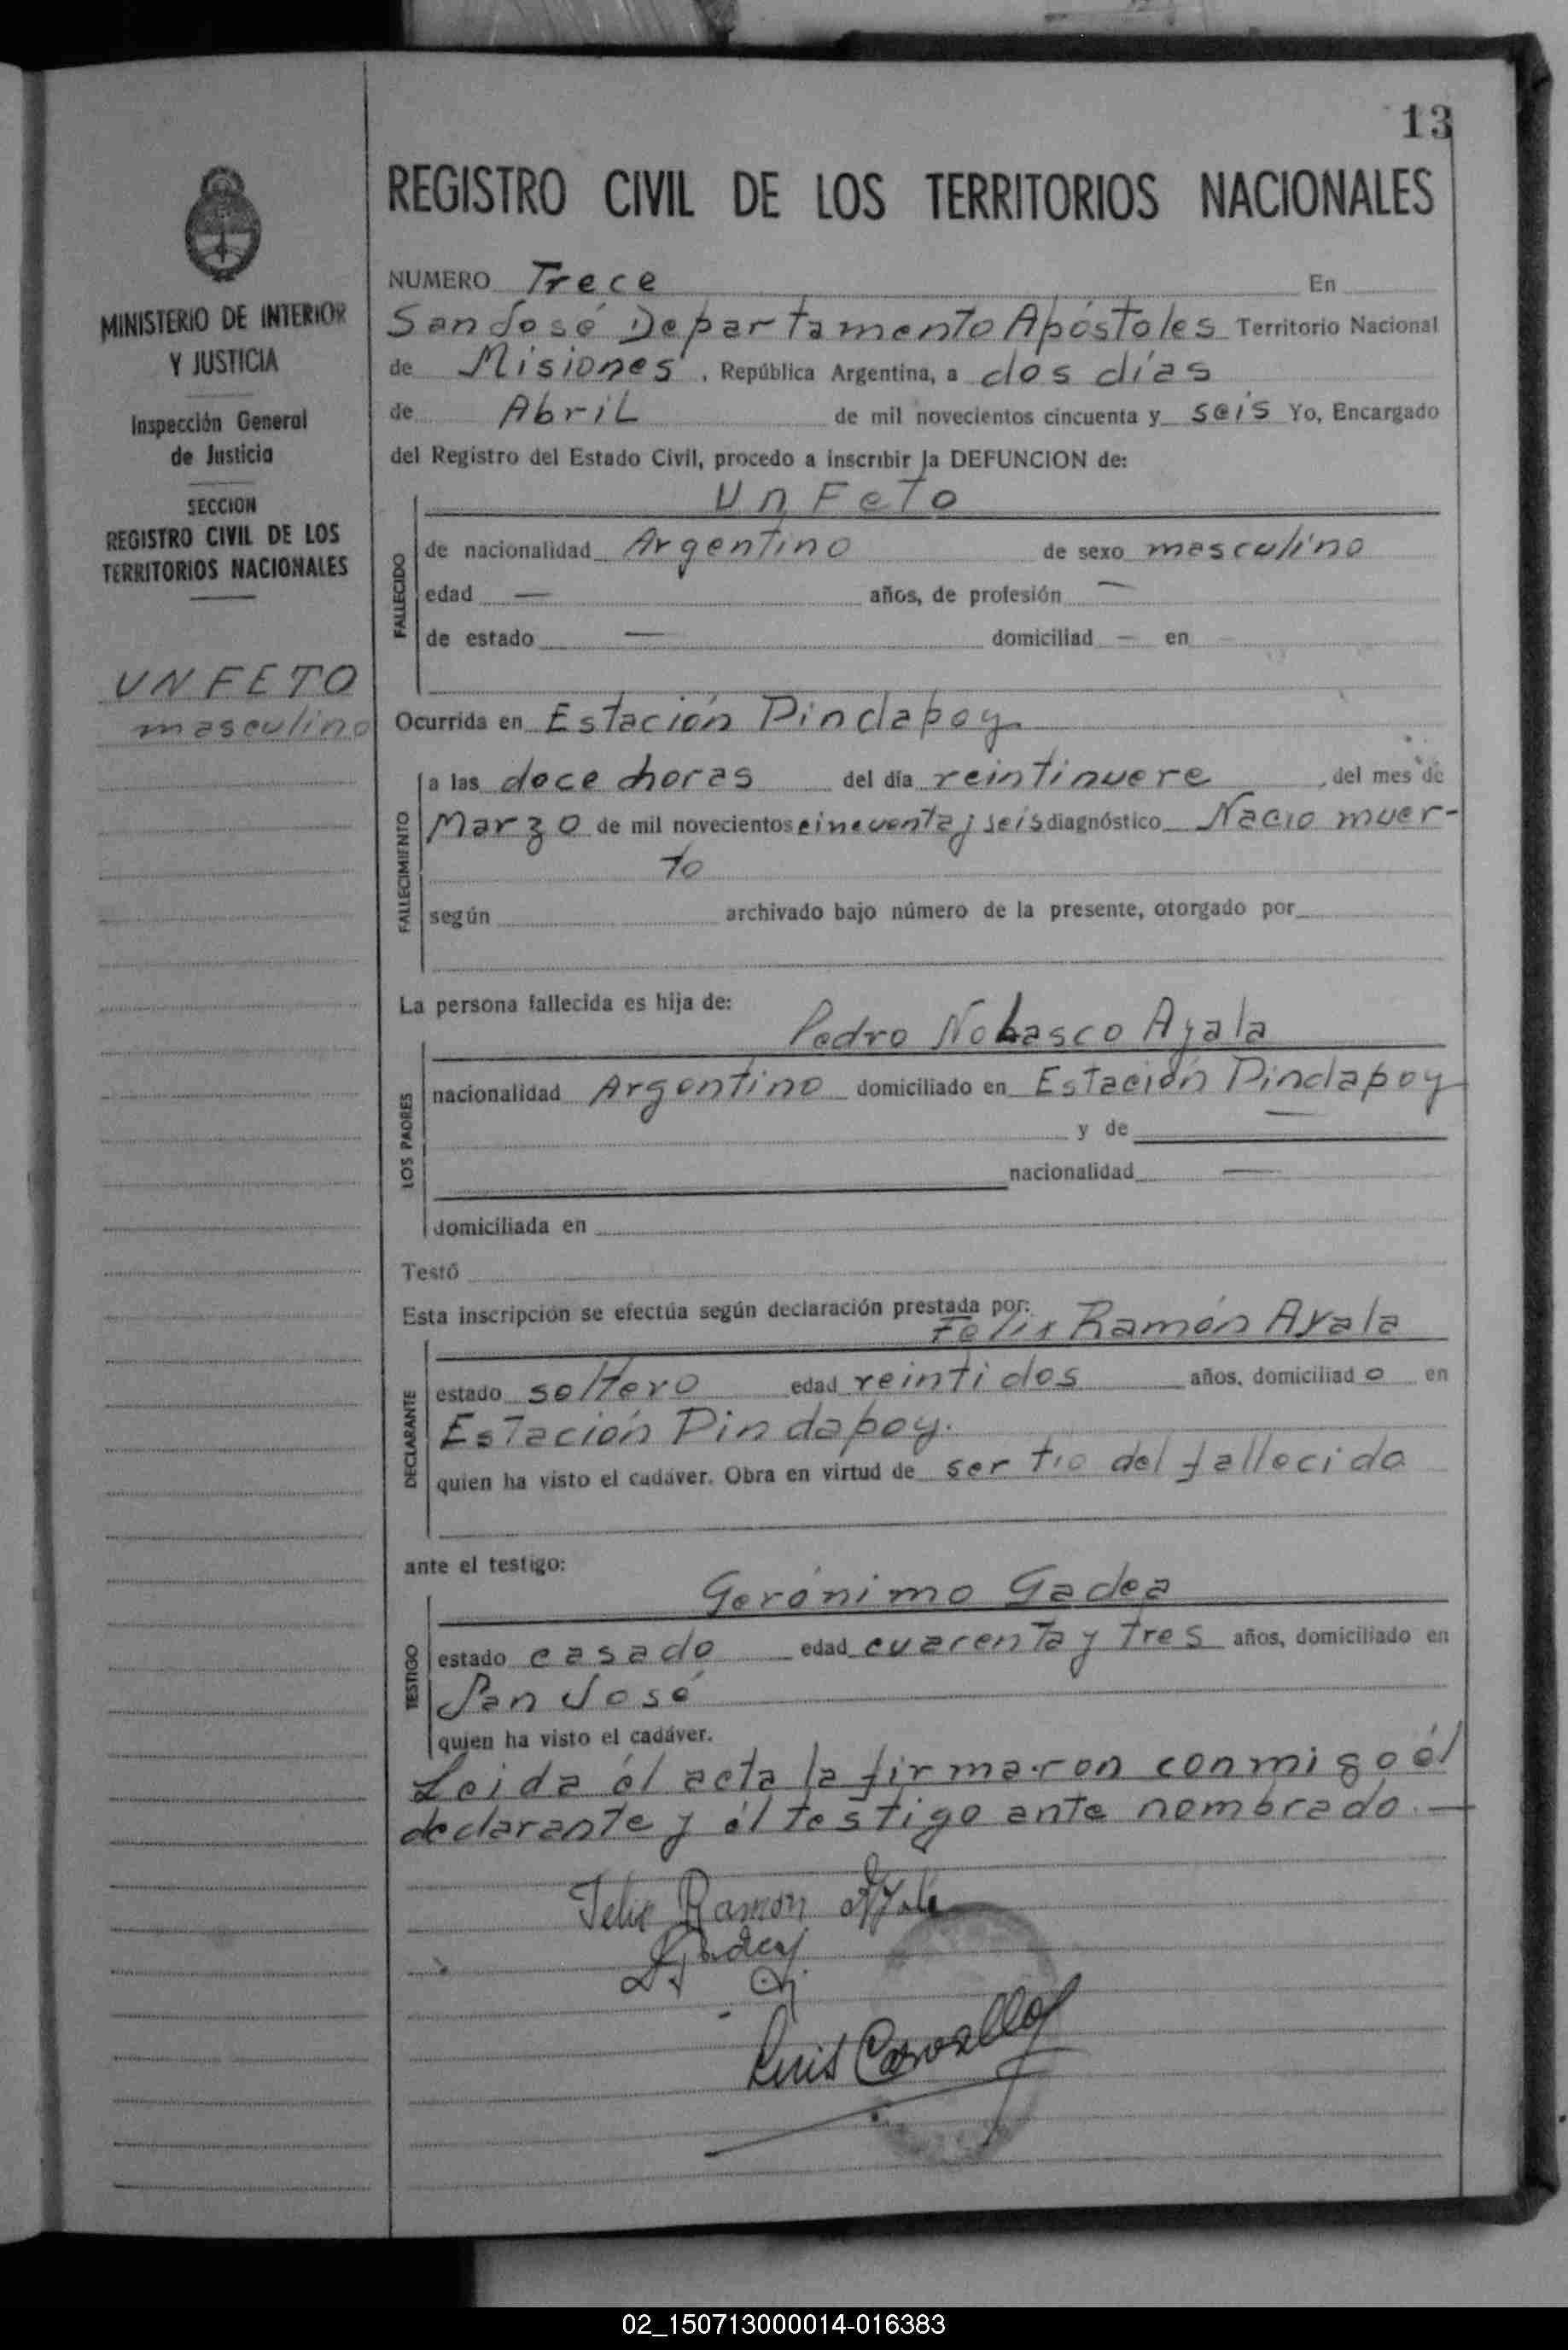 13
REGISTRO CIVIL DE LOS TERRITORIOS NACIONALES
MINISTERIO DE INTERIOR
Y JUSTICIA
Inspección General
de Justicia
SECCION
REGISTRO CIVIL DE LOS
TERRITORIOS NACIONALES
UN FETO
masculino
NUMERO Trece En
San José Departamento Apóstoles Territorio Nacional
de Misiones, República Argentina, a dos días
de Abril de mil novecientos cincuenta y seis Yo, Encargado
del Registro del Estado Civil, procedo a inscribir la DEFUNCION de:
Un Feto
FALLECIDO
de nacionalidad Argentino de sexo masculino
edad — años, de profesión —
de estado — domiciliad — en —
Ocurrida en Estación Pindapoy
FALLECIMIENTO
a las doce horas del día veintinueve, del mes de
Marzo de mil novecientos cincuenta y seis diagnóstico Nacio muer-
to
según archivado bajo número de la presente, otorgado por
La persona fallecida es hija de:
Pedro Nolasco Ayala
LOS PADRES
nacionalidad Argentino domiciliado en Estación Pindapoy
y de —
nacionalidad —
domiciliada en
Testó
Esta inscripción se efectúa según declaración prestada por:
Felix Ramón Ayala
DECLARANTE
estado soltero edad veintidos años, domiciliado en
Estación Pindapoy.
quien ha visto el cadáver. Obra en virtud de ser tio del fallecido
ante el testigo:
Gerónimo Gadea
TESTIGO
estado casado edad cuarenta y tres años, domiciliado en
San José
quien ha visto el cadáver.
Leida él acta la firmaron conmigo él
declarante y él testigo ante nombrado. —
Felix Ramon Ayala
Gadea
Luis Carvallo
02_150713000014-016383